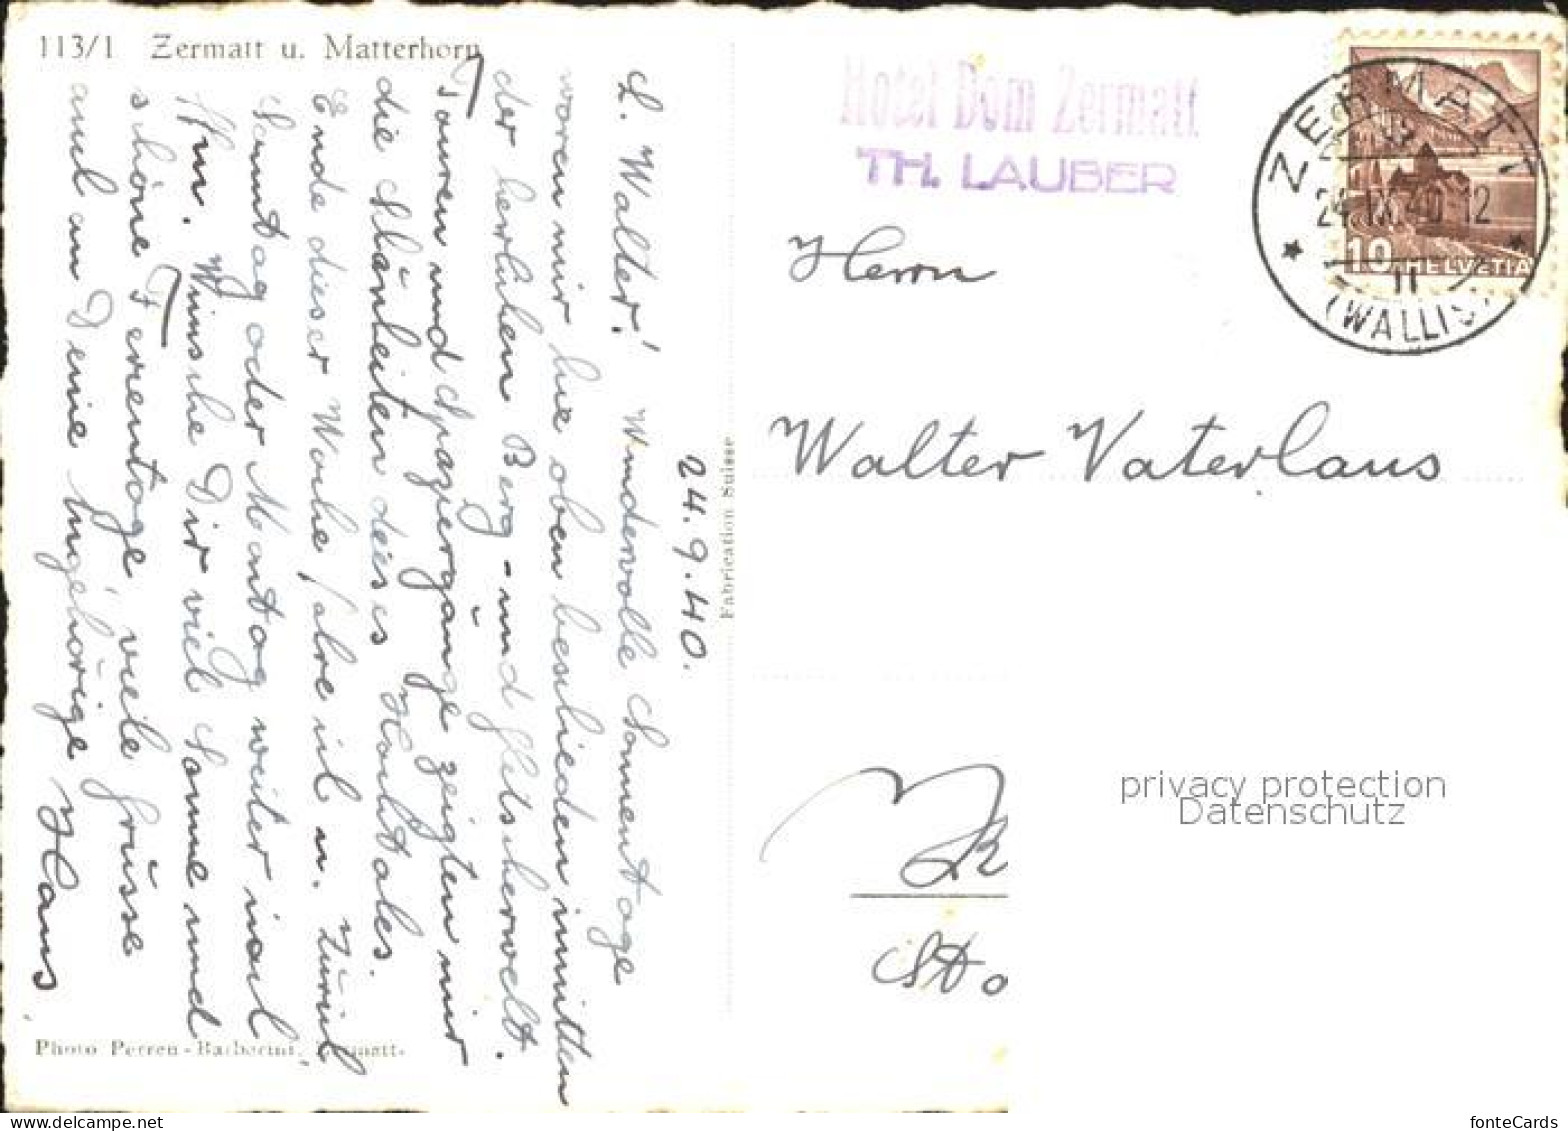 113/1 Zermatt u. Matterhorn
24.9.40.
L. Walter! Wundervolle Sonnentage
waren mir hie oben beschieden inmitten
der herrlichen Berg- und Gletscherwelt.
Touren und Spaziergänge zeigten mir
die Schönheiten dieses Hochtales.
Ende dieser Woche fahre ich n. Zürich,
Sonntag oder Montag weiter nach
Wünsche Dir viel Sonne und
schöne Ferientage, viele Grüsse
auch an Deine Angehörige Hans
Photo Perren-Barberini, Zermatt
Fabrication Suisse
Hotel Dom Zermatt
TH. LAUBER
ZERMATT
24.IX.40.12
II
(WALLIS)
10 HELVETIA
Herrn
Walter Vaterlaus
privacy protection
Datenschutz
www.delcampe.net
fonteCards